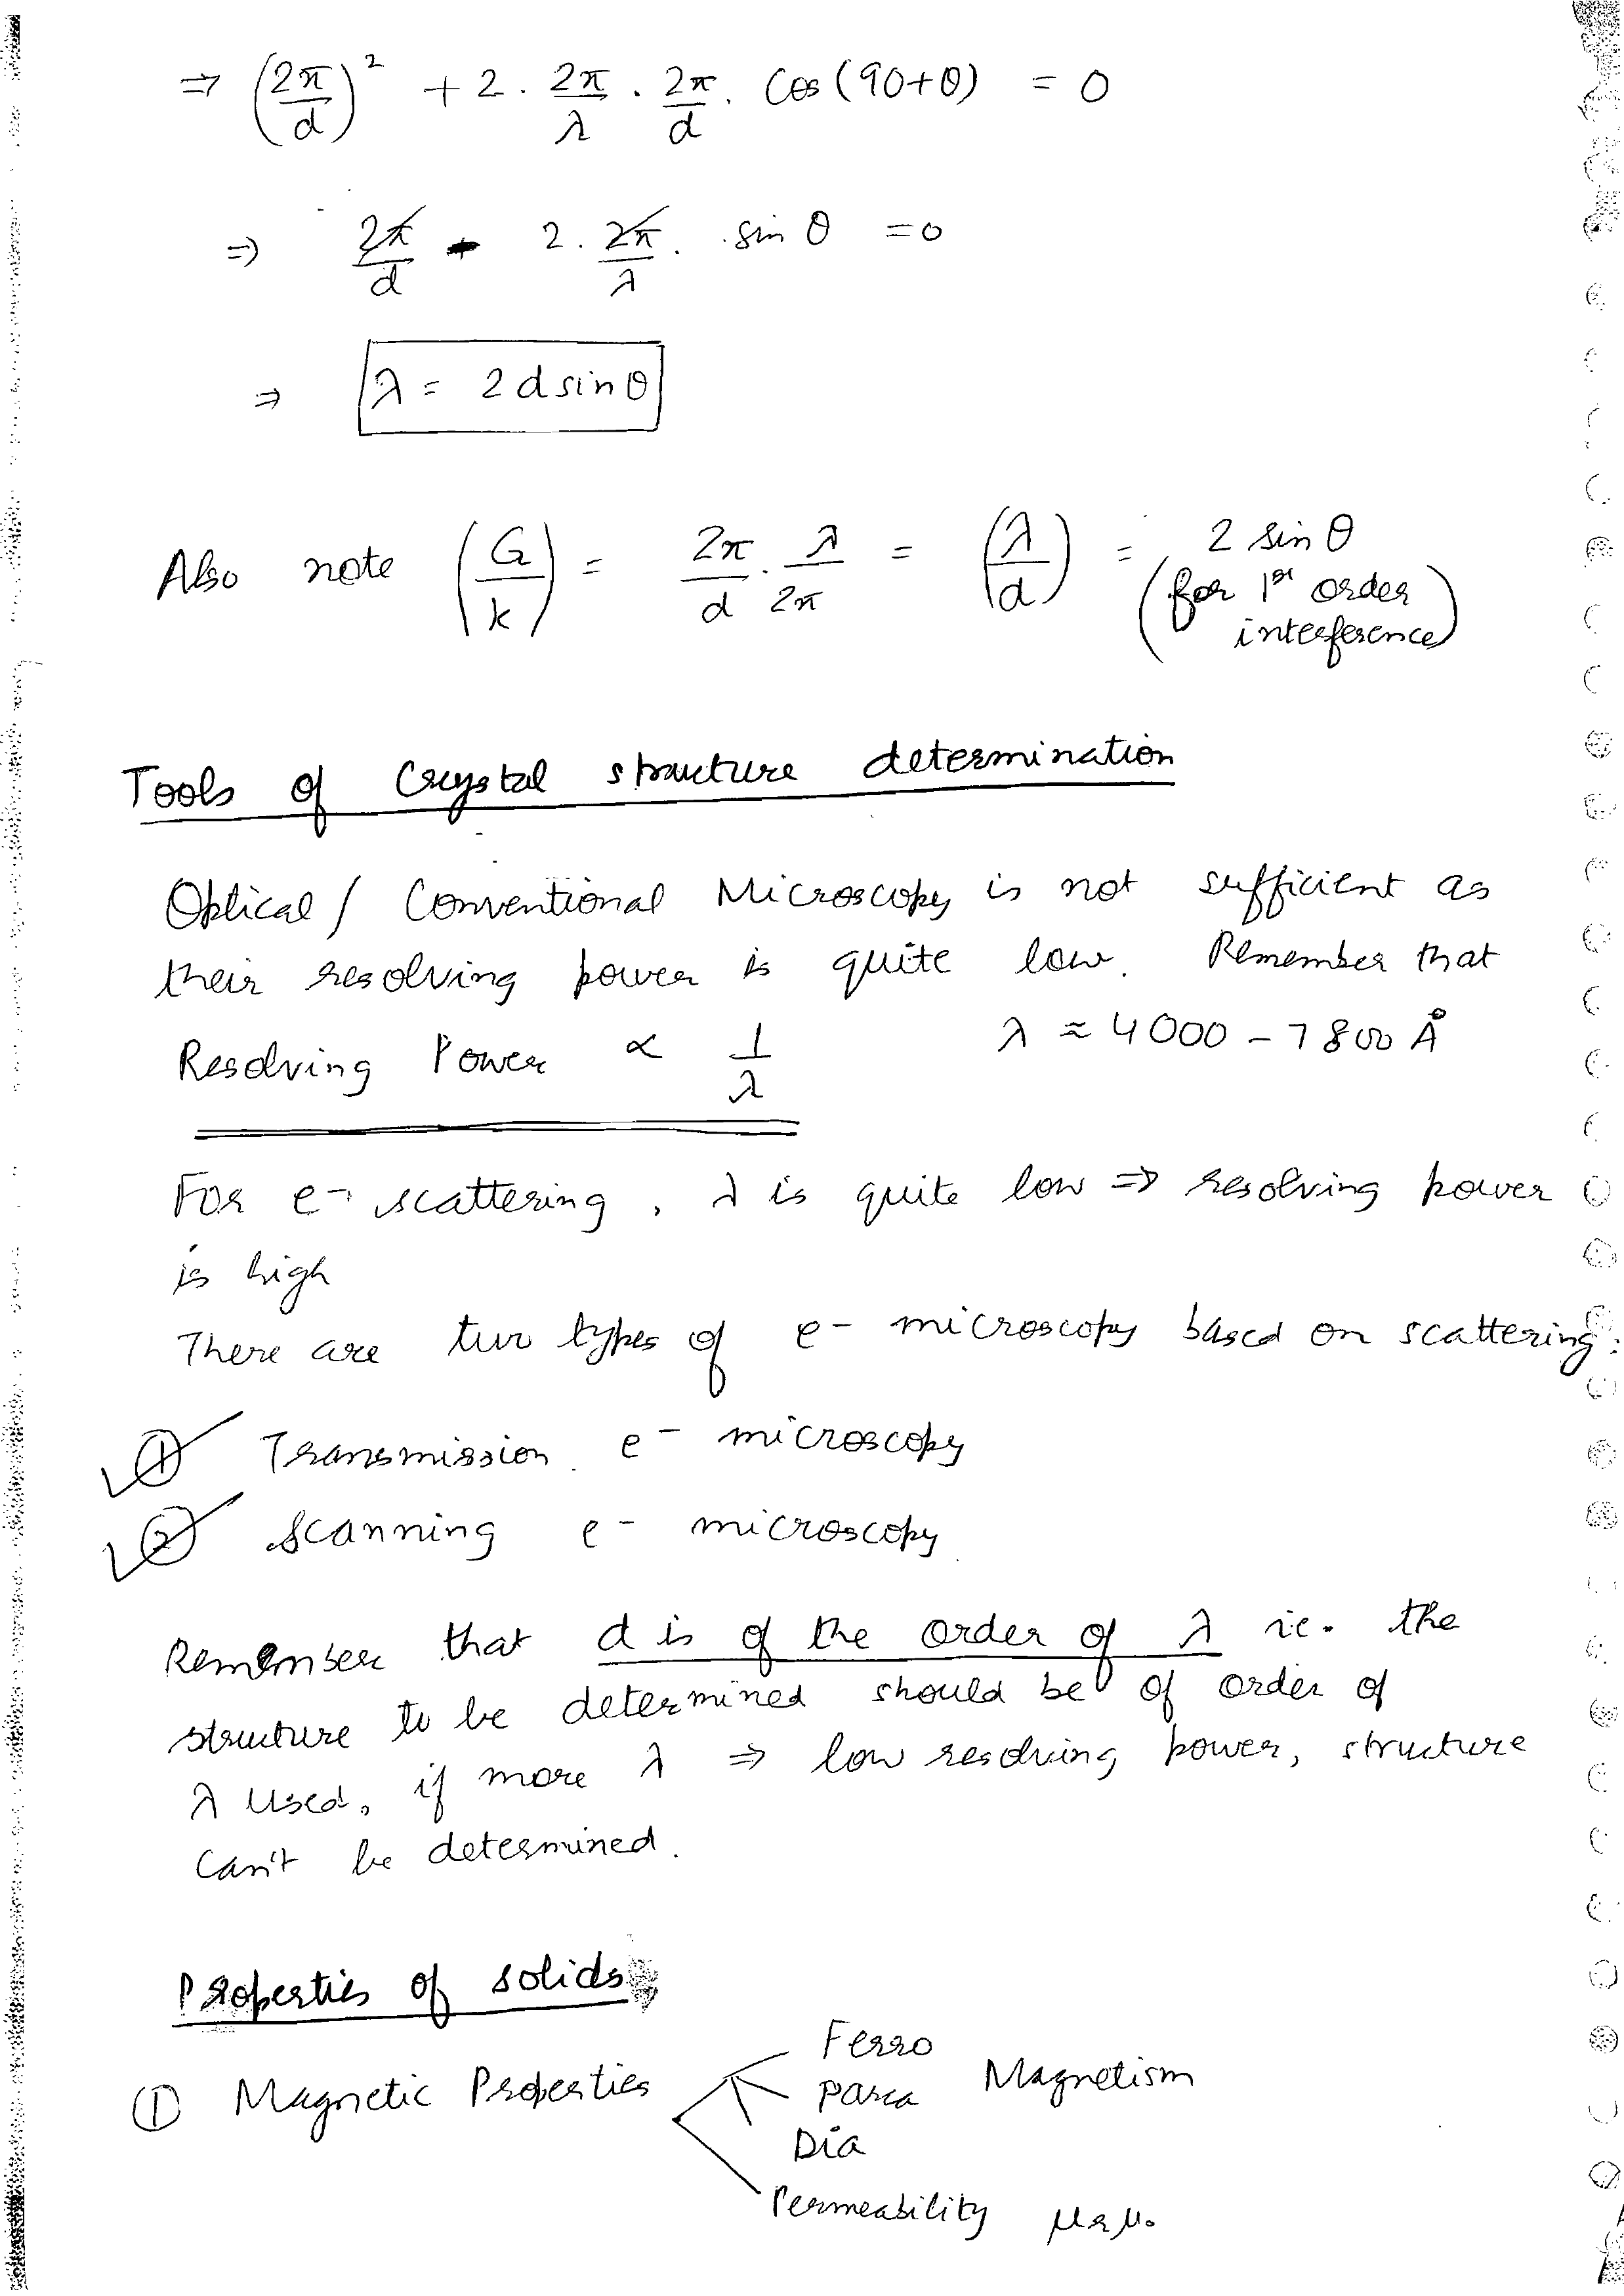 ⇒ (2π/d)² + 2 . 2π/λ . 2π/d . Cos (90+θ) = 0
⇒ 2π/d - 2 . 2π/λ . sin θ = 0
⇒ λ = 2 d sin θ
Also note (G/k) = 2π/d . λ/2π = (λ/d) = 2 sin θ
(for 1st order
interference)
Tools of Crystal structure determination
Optical / Conventional Microscopy is not sufficient as
their resolving power is quite low. Remember that
Resolving Power ∝ 1/λ λ ≈ 4000 - 7800 Å
For e- scattering, λ is quite low ⇒ resolving power
is high
There are two types of e- microscopy based on scattering:
① Transmission e- microscopy
② Scanning e- microscopy
Remember that d is of the order of λ ie. the
structure to be determined should be of order of
λ used, if more λ ⇒ low resolving power, structure
can't be determined.
Properties of solids
① Magnetic Properties
Ferro
Para Magnetism
Dia
Permeability μr μo